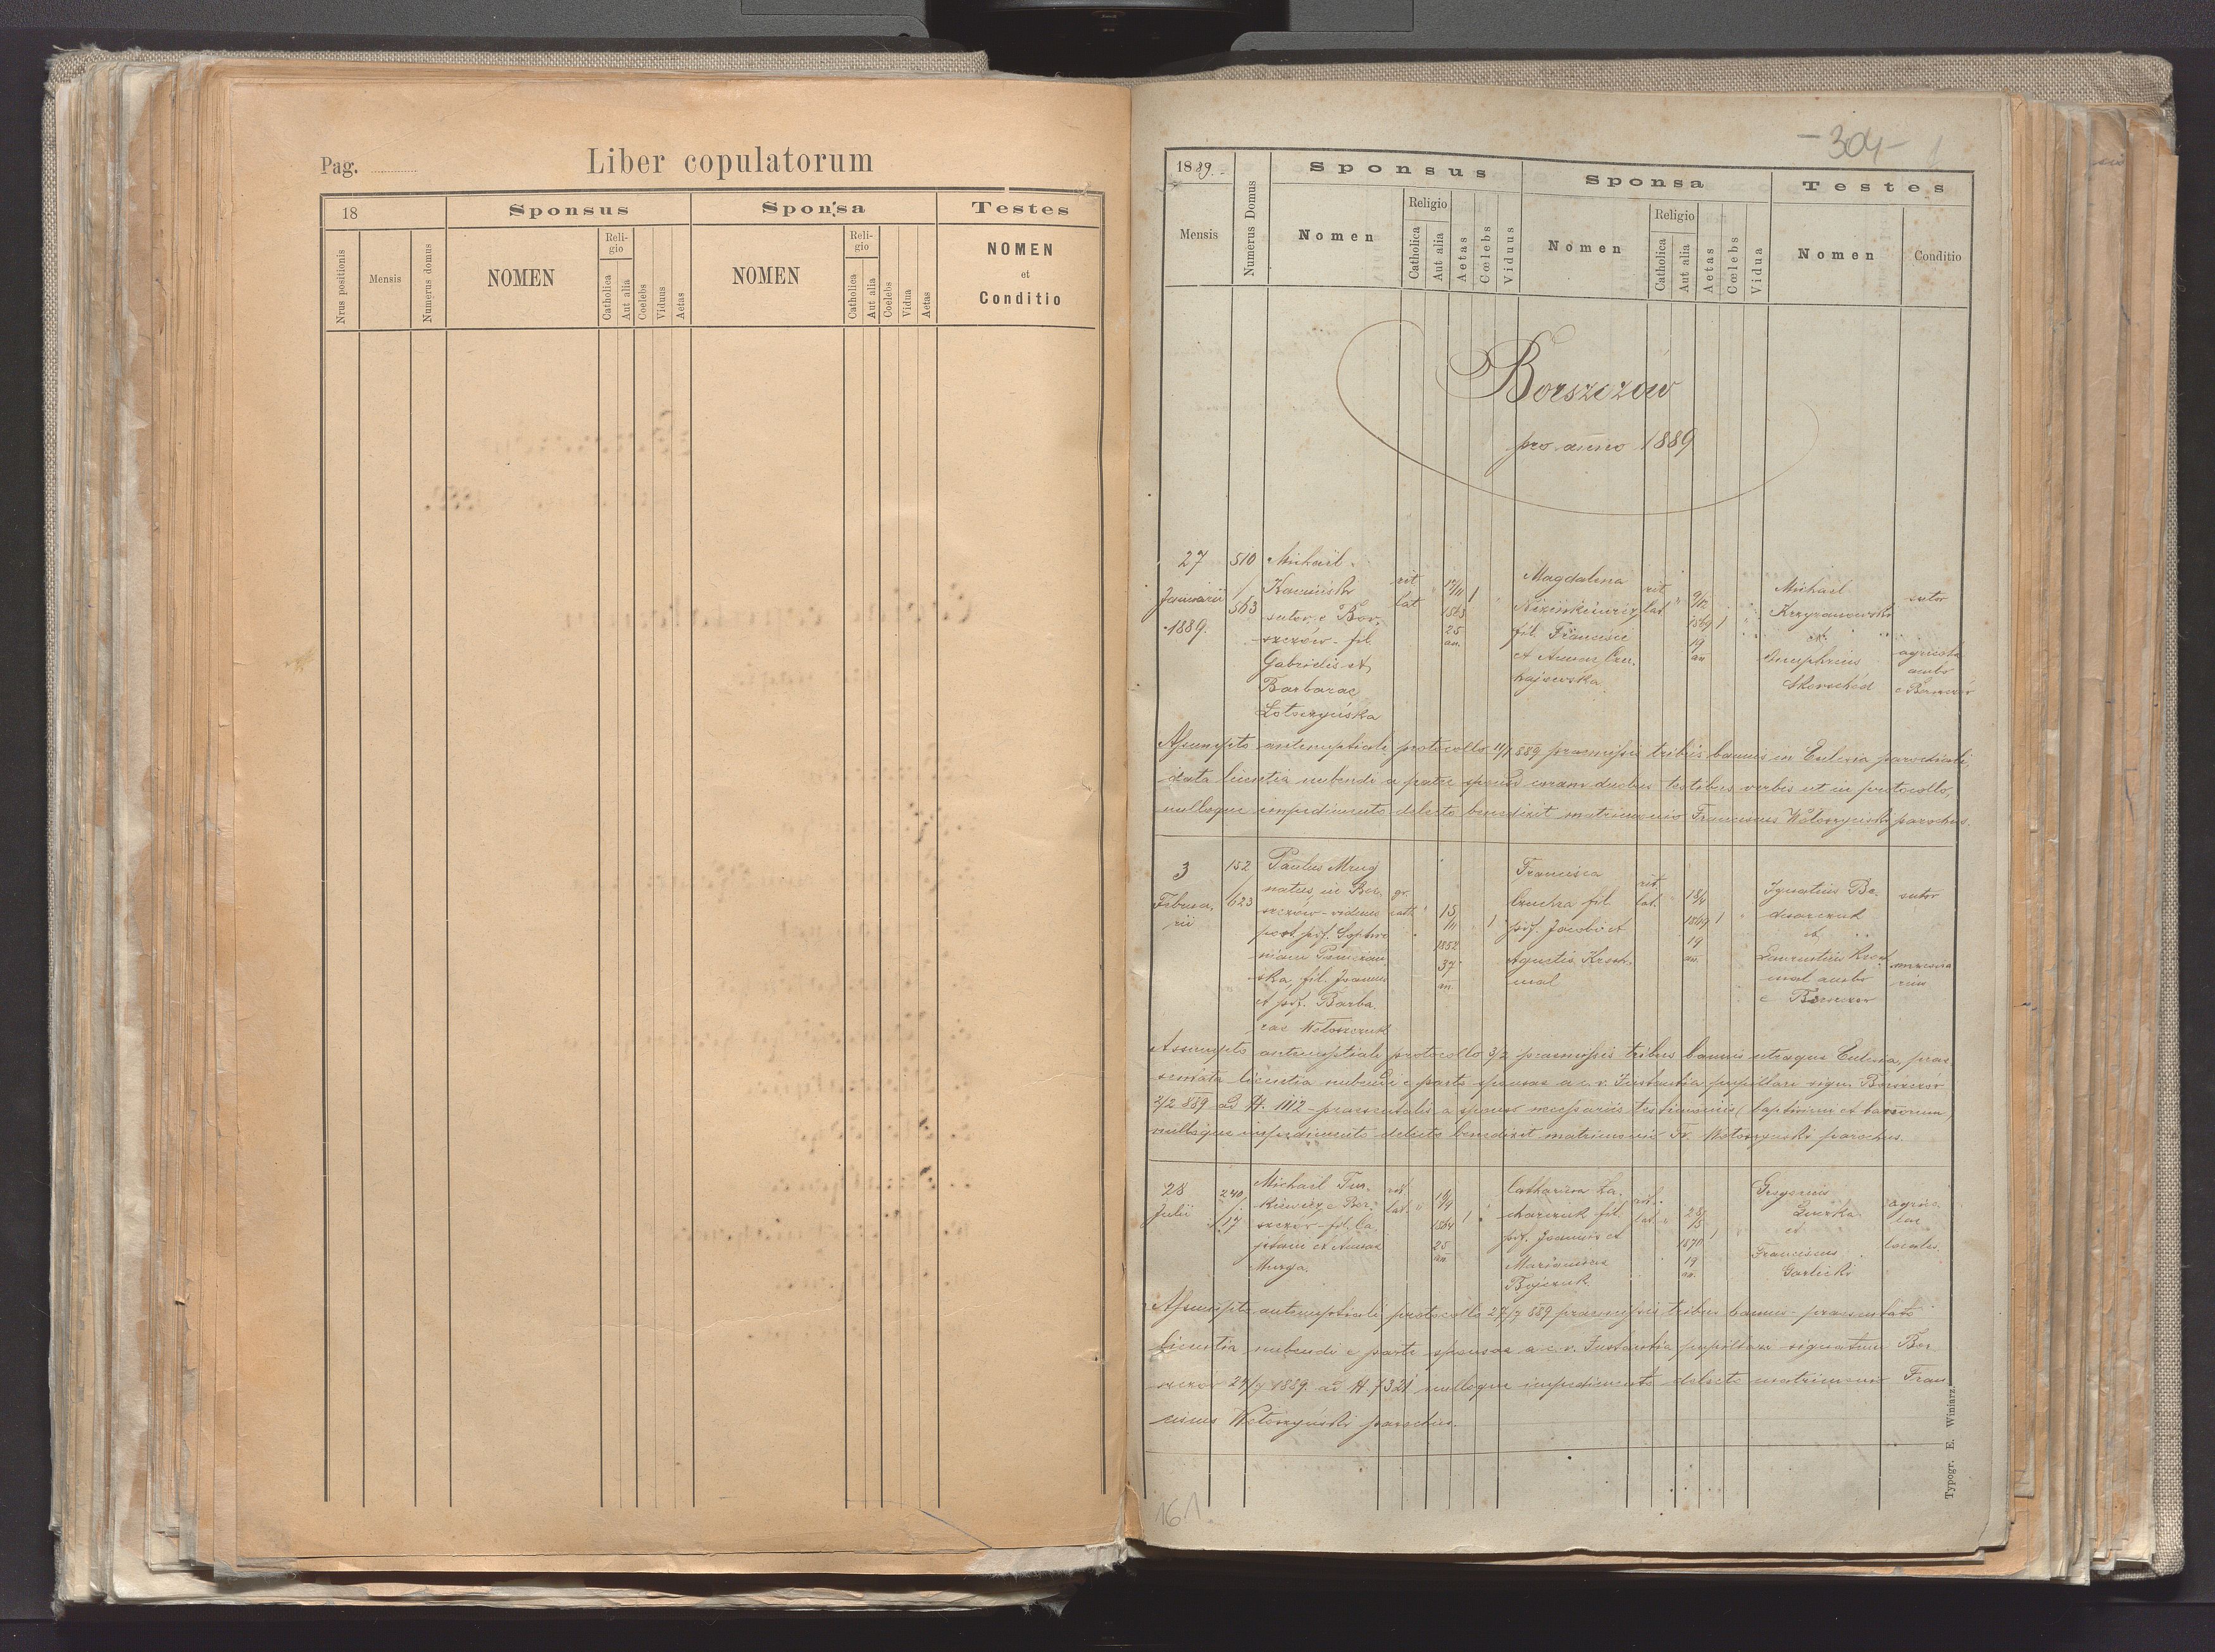 Pag.
Liber copulatorum
18
Sponsus
Sponsa
Testes
Nrus positionis
Mensis
Numerus domus
NOMEN
Reli-
gio
Catholica
Aut alia
Coelebs
Viduus
Aetas
NOMEN
Reli-
gio
Catholica
Aut alia
Coelebs
Vidua
Aetas
NOMEN
et
Conditio
-304-
1889.
Mensis
Numerus Domus
Sponsus
Nomen
Religio
Catholica
Aut alia
Aetas
Cœlebs
Viduus
Sponsa
Nomen
Religio
Catholica
Aut alia
Aetas
Cœlebs
Vidua
Testes
Nomen
Conditio
Borszczów
pro anno 1889
27
Januarii
1889.
510
/
563
Michaël
Kamiński
sutor e Bor-
szczów - fil.
Gabrielis et
Barbarae
Łotoczyńska
rit
lat
17/11
1863
25
an.
1
Magdalena
fil. Francisci
et Annae Czu-
hajewska
rit
lat
9/12
1869
19
an
1
Michael
Krzyzanowski
et
Onuphrius
sutor
agricola
ambo
e Borszczów
Assumpto antenuptiali protocollo 889 praemissis tribus bannis in Eclesia parochiali,
data licentia nubendi a patre coram duobus testibus verbis ut in protocollo,
nulloque impedimento delecto benedixit matrimonio Franciscus Wołoszyński parochus.
3
Februa-
rii
152
/
623
Paulus Mrug
natus in Bor-
szczów - viduus
post p. def.
ska, fil. Joannis
et p. def. Barba-
rae Wołoszczuk
gr.
cath
15
/11
1852
37
an.
1
Francisca
fil.
Jacobi et
Agnetis
rit.
lat.
18/4
1869
19
an.
1
Ignatius
et
Laurentius
ambo
e Borszczów
sutor
Assumpto antenuptiali protocollo 3/2 praemissis tribus bannis utraque Eclesia, prae-
sentata licentia nubendi e parte sponsae a c. r. Instantia pupillari sign. Borszczów
2/2 889 ad N. 1112 - praesentatis a sponso necessariis testimoniis (baptismi et bannorum)
nulloque impedimento delecto benedixit matrimonio Fr. Wołoszyński parochus.
28
Julii
240
/
117
Michaël Tur-
kiewicz e Bor-
szczów - fil. Ca-
jetani et Annae
Murga.
rit.
lat.
1864
25
an
1
Catharina Za-
charczuk fil.
p. def. Joannis et
Mariannae
Bojczuk
rit.
lat.
23/5
1870
19
an.
1
Gregorius
et
Franciscus
Garlicki
agrico-
lae
locales.
Assumpto antenuptiali protocollo 27/7 889 praemissis tribus bannis - praesentata
licentia nubendi e parte sponsae a c. r. Instantia pupillari signatum Bor-
szczów 27/7 1889. ad N. 7321 nulloque impedimento delecto matrimonio Fran-
ciscus Wołoszyński parochus.
Typogr. E. Winiarz.
161